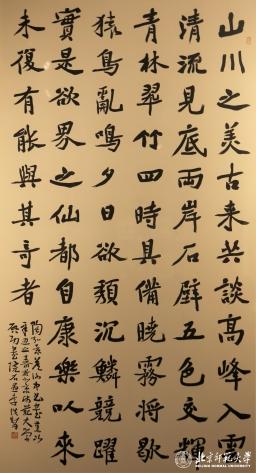 山川之美古来共談高峰入雲
清流見底両岸石壁五色交輝
青林翠竹四時具備曉霧將歇
猿鳥亂鳴夕日欲頹沉鱗競躍
實是欲界之仙都自康樂以來
未復有能與其奇者
北京师范大学
BEIJING NORMAL UNIVERSITY